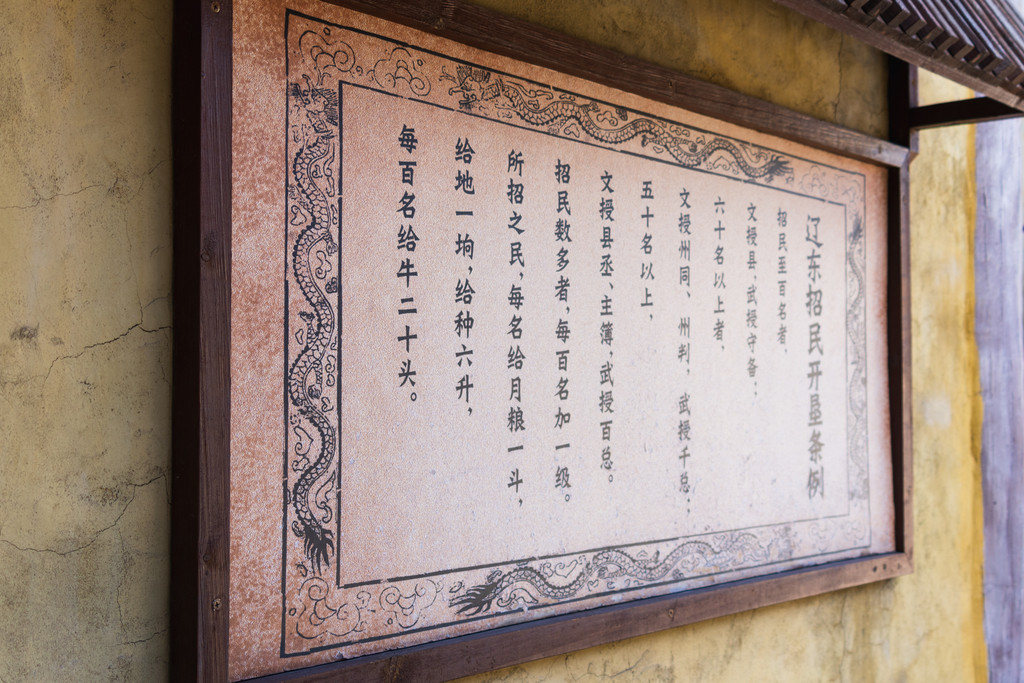 辽东招民开垦条例
招民至百名者，
文授县，武授守备；
六十名以上者，
文授州同、州判，武授千总；
五十名以上，
文授县丞、主簿，武授百总。
招民数多者，每百名加一级。
所招之民，每名给月粮一斗，
给地一垧，给种六升，
每百名给牛二十头。